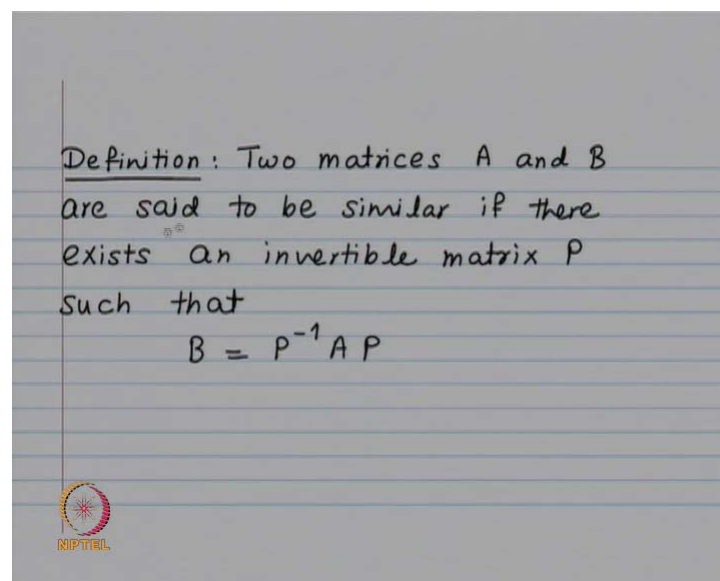 Definition : Two matrices A and B
are said to be similar if there
exists an invertible matrix P
such that
B = P⁻¹ A P
NPTEL